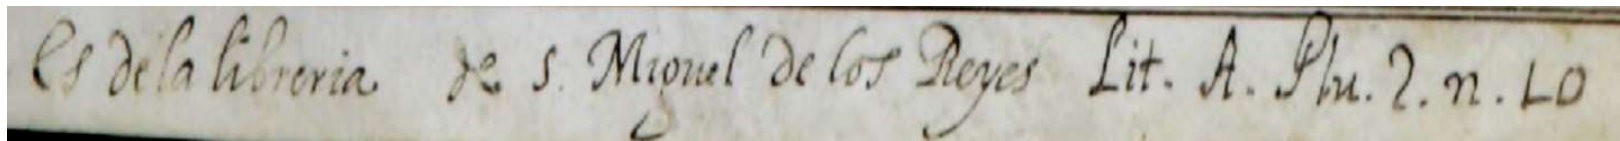 Es de la libreria de S. Miguel de los Reyes Lit. A. Plu. 2. n. 10